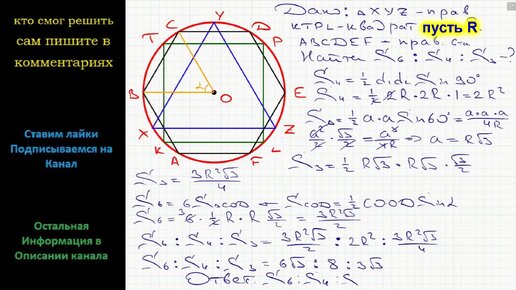 кто смог решить
сам пишите в
комментариях
Ставим лайки
Подписываемся на
Канал
Остальная
Информация в
Описании канала
Y
C
D
T
P
α
B
O
E
X
Z
K
A
F
L
Дано: ΔXYZ - прав
KTPL - квадрат пусть R
ABCDEF - прав.
Найти S₆ : S₄ : S₃ - ?
S₄ = 1/2 d₁d₂ sin 90°
S₄ = 1/2 · 2R · 2R · 1 = 2R²
S₃ = 1/2 a·a sin 60° = a·a·a/4R
a²/2 · √3/2 = a³/4R ⇒ a = R√3
S₃ = 1/2 R√3 · R√3 · √3/2
S₃ = 3R²√3/4
S₆ = 6 S COD ← S COD = 1/2 CO·OD sin α
S₆ = 6 · 1/2 R·R √3/2 = 3R²√3/2
S₆ : S₄ : S₃ = 3R²√3/2 : 2R² : 3R²√3/4
S₆ : S₄ : S₃ = 6√3 : 8 : 3√3
Ответ: S₆ : S₄ : S